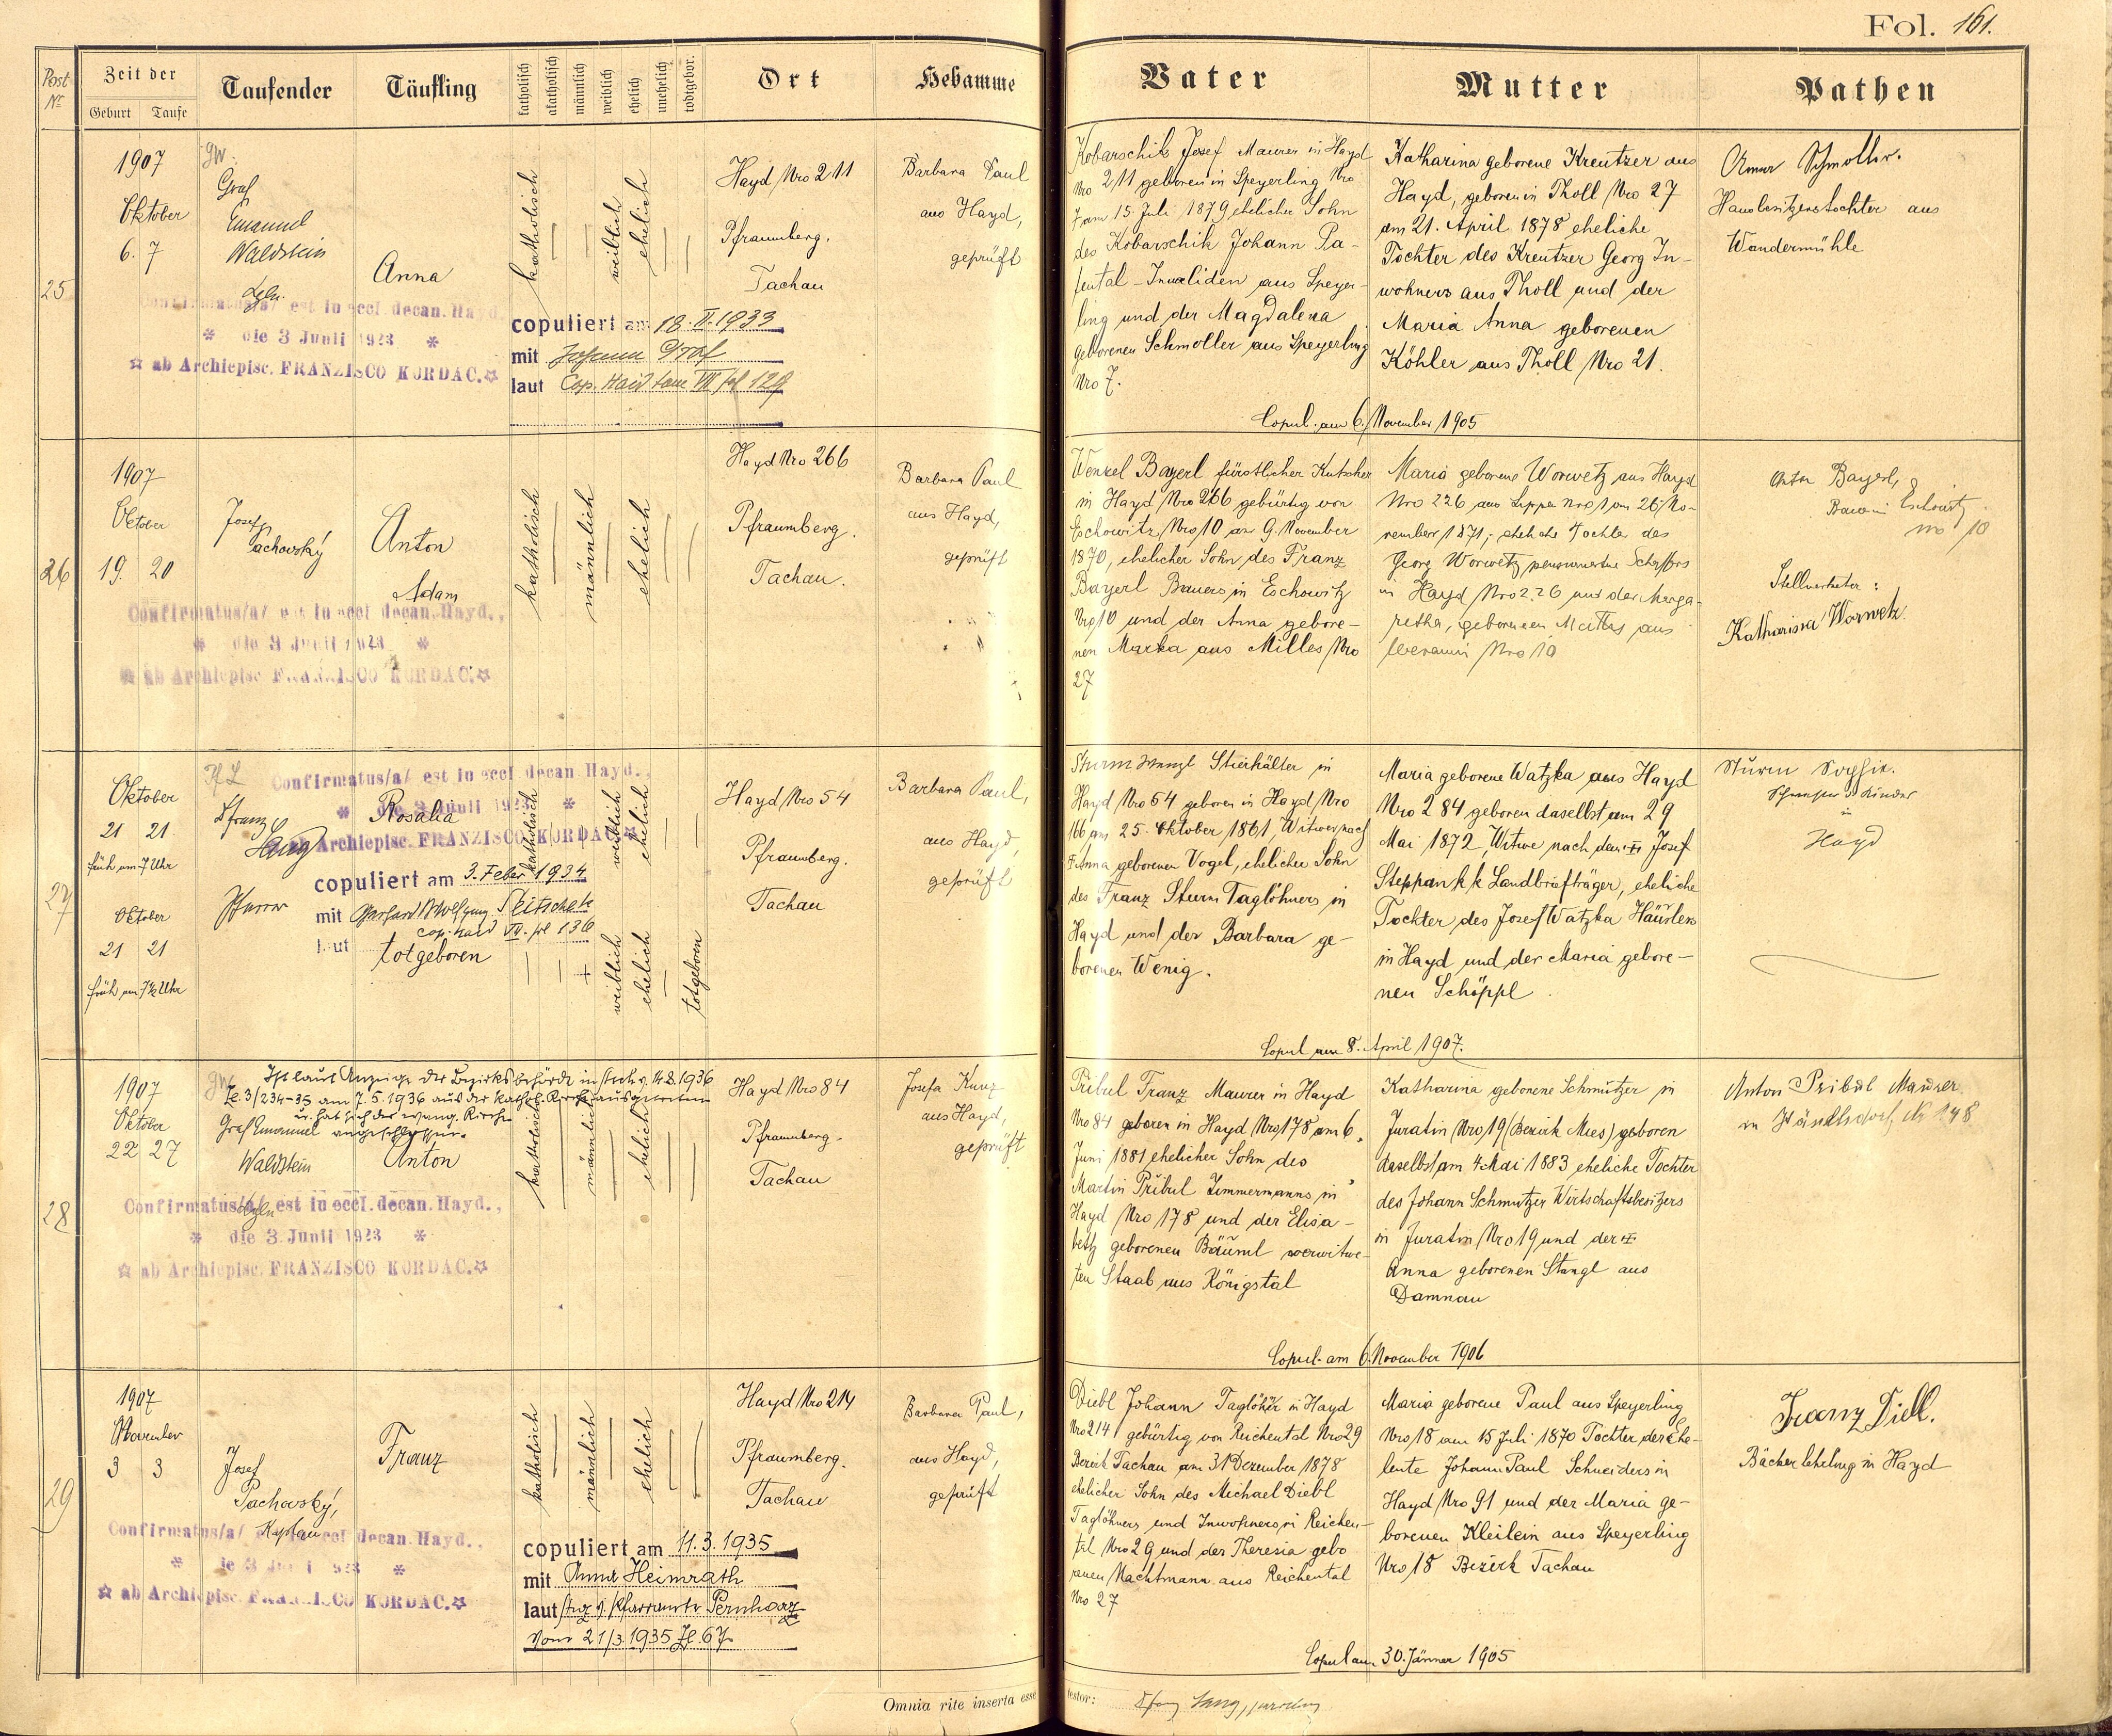 Fol. 161.
Post Nr
Zeit der
Geburt
Taufe
Taufender
Täufling
katholisch
akatholisch
männlich
weiblich
ehelich
unehelich
todtgebor.
Ort
Hebamme
Vater
Mutter
Pathen
25
1907
Oktober
6. 7
Graf
Emanuel
Waldstein
Anna
katholisch
weiblich
ehelich
Hayd Nro 211
Pfraumberg.
Tachau
Barbara Paul
aus Hayd,
geprüft
Confirmatus/a/ est in eccl. decan. Hayd.
* die 3 Junii 1923 *
☆ ab Archiepisc. FRANZISCO KORDAC. ☆
copuliert am 18. II. 1933
mit Johann Graf
laut Cop. Haid tom VII fol 129
Kobarschik Josef Maurer in Hayd
Nro 211 geboren in Speyerling Nro
7 am 15. Juli 1879 ehelicher Sohn
des Kobarschik Johann Pa-
tental-Invaliden aus Speyer-
ling und der Magdalena
geborenen Schmoller aus Speyerling
Nro 7.
Katharina geborene Kreutzer aus
Hayd, geboren in Tholl Nro 27
am 21. April 1878 eheliche
Tochter des Kreutzer Georg In-
wohners aus Tholl und der
Maria Anna geborenen
Köhler aus Tholl Nro 21.
Schmoller.
Hausbesitzerstochter aus
Wandermühle
Copul. am 6. November 1905
26
1907
Oktober
19. 20
Josef
Pachovský
Anton
Adam
katholisch
männlich
ehelich
Hayd Nro 266
Pfraumberg.
Tachau.
Barbara Paul
aus Hayd,
geprüft
Confirmatus/a/ est in eccl decan. Hayd.,
* die 3 Junii 1923 *
☆ ab Archiepisc. FRANZISCO KORDAC. ☆
Wenzel Bayerl fürstlicher Kutscher
in Hayd Nro 266 gebürtig von
Eschowitz Nro 10 am 9. November
1870, ehelicher Sohn des Franz
Bayerl Bauers in Eschowitz
Nro 10 und der Anna gebore-
nen Marka aus Milles Nro
27
Maria geborene Worwetz aus Hayd
Nro 226 aus Lippa Nro 1 am 26. No-
vember 1871, eheliche Tochter des
Georg Worwetz pensionierten Schaffers
in Hayd Nro 226 und der Marga-
retha, geborenen Mathes aus
Nro 10
Anton Bayerl,
Eschowitz
no 10
Stellvertreter:
Katharina Worwetz.
27
Oktober
21 21
früh um 7 Uhr
Oktober
21 21
früh um 7½ Uhr
Franz
Lang
Pfarrer
Confirmatus/a/ est in eccl decan. Hayd.,
* die 3 Junii 1923 *
ab Archiepisc. FRANZISCO KORDAC. ☆
Rosalia
katholisch
weiblich
ehelich
copuliert am 3. Feber 1934
mit Wolfgang Pleitschek
cop. Haid VII. fol 136
laut
totgeboren
weiblich
ehelich
totgeboren
Hayd Nro 54
Pfraumberg.
Tachau
Barbara Paul,
aus Hayd,
geprüft
Sturm Wenzl Stierhälter in
Hayd Nro 54 geboren in Hayd Nro
166 am 25. Oktober 1861, Witwer nach
Anna geborenen Vogel, ehelicher Sohn
des Franz Sturm Taglöhners in
Hayd und der Barbara ge-
borenen Wenig.
Maria geborene Watzka aus Hayd
Nro 284 geboren daselbst am 29
Mai 1872, Witwe nach dem Josef
Steppan k k Landbriefträger, eheliche
Tochter des Josef Watzka Häuslers
in Hayd und der Maria gebore-
nen Schöppl
Sturm Sophie.
in
Hayd
Copul am 8. April 1907.
28
1907
Oktober
22 27
Ist laut Anzeige der Bezirksbehörde in v. 14.8.1936
Zl. 3/234-35 am 7.5.1936 aus der kathol. Kirche ausgetreten
u. hat sich der evang. Kirche
angeschlossen.
Graf Emanuel
Waldstein
Anton
katholisch
männlich
ehelich
Hayd Nro 84
Pfraumberg.
Tachau
Josefa Kunz
aus Hayd,
geprüft
Confirmatus/a/ est in eccl. decan. Hayd.,
* die 3. Junii 1923 *
☆ ab Archiepisc. FRANZISCO KORDAC. ☆
Pribul Franz Maurer in Hayd
Nro 84 geboren in Hayd Nro 178 am 6.
Juni 1881 ehelicher Sohn des
Martin Pribul Zimmermanns in
Hayd Nro 178 und der Elisa-
beth geborenen Bäuml verwitwe-
ten Staab aus Königstal
Katharina geborene Schmutzer in
Juratin Nro 19 (Bezirk Mies) geboren
daselbst am 4. Mai 1883 eheliche Tochter
des Johann Schmutzer Wirtschaftsbesitzers
in Juratin Nro 19 und der
Anna geborenen Stangl aus
Damnau
Anton Pribul Maurer
in Nr 148
Copul. am 6. November 1906
29
1907
November
3 3
Josef
Pachovský,
Kaplan
Franz
katholisch
männlich
ehelich
Hayd Nro 214
Pfraumberg.
Tachau
Barbara Paul,
aus Hayd,
geprüft
Confirmatus/a/ est in eccl decan. Hayd.,
* die 3 Junii 1923 *
☆ ab Archiepisc. FRANZISCO KORDAC. ☆
copuliert am 11.3.1935
mit Anna Heimrath
laut Anz. d. Pfarramts Pernharz
vom 21/3 1935 Zl. 67
Diebl Johann Taglöhner in Hayd
Nro 214 gebürtig von Reichental Nro 29
Bezirk Tachau am 31 Dezember 1878
ehelicher Sohn des Michael Diebl
Taglöhners und Inwohners in Reichen-
tal Nro 29 und der Theresia gebo
renen Nachtmann aus Reichental
Nro 27
Maria geborene Paul aus Speyerling
Nro 18 am 15 Juli 1870 Tochter der Ehe-
leute Johann Paul Schneiders in
Hayd Nro 91 und der Maria ge-
borenen Kleilein aus Speyerling
Nro 18 Bezirk Tachau
Franz Diebl.
Bäckerlehrling in Hayd
Copul am 30. Jänner 1905
Omnia rite inserta esse testor: